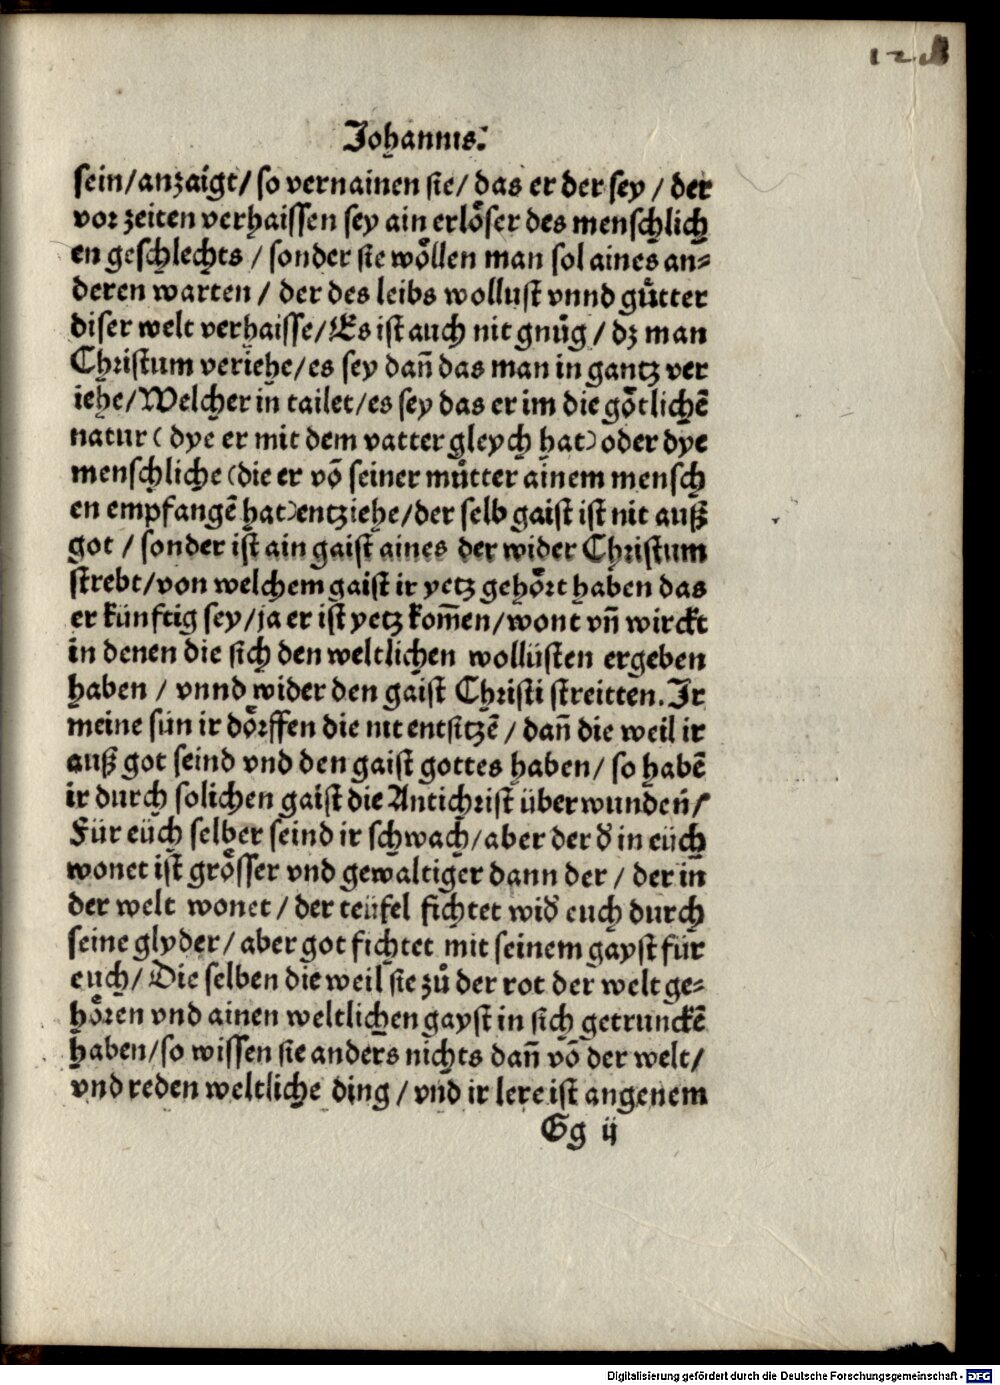 Johannis.
sein/anzaigt/so vernainen sie/das er der sey/der
vor zeiten verhaissen sey ain erlöser des menschlich
en geschlechts/sonder sie wöllen man sol aines an-
deren warten/der des leibs wollust vnnd gütter
diser welt verhaisse/Es ist auch nit gnůg/dz man
Christum veriehe/es sey dañ das man in gantz ver
iehe/Welcher in tailet/es sey das er im die götlichẽ
natur(dye er mit dem vatter gleych hat)oder dye
menschliche(die er võ seiner můtter ainem mensch
en empfangẽ hat)entziehe/der selb gaist ist nit auß
got/sonder ist ain gaist aines der wider Christum
strebt/von welchem gaist ir yetz gehört haben das
er künftig sey/ja er ist yetz kom̃en/wont vñ wirckt
in denen die sich den weltlichen wollüsten ergeben
haben/vnnd wider den gaist Christi streitten.Ir
meine sün ir dörffen die nit entsitzẽ/dañ die weil ir
auß got seind vnd den gaist gottes haben/so habẽ
ir durch solichen gaist die Antichrist überwundeñ/
Für eüch selber seind ir schwach/aber der d̕ in eüch
wonet ist grösser vnd gewaltiger dann der/der in
der welt wonet/der teüfel fichtet wid̕ euch durch
seine glyder/aber got fichtet mit seinem gayst für
euch/Die selben die weil sie zů der rot der welt ge-
hören vnd ainen weltlichen gayst in sich getrunckẽ
haben/so wissen sie anders nichts dañ võ der welt/
vnd reden weltliche ding/vnd ir lere ist angenem
Gg ij
Digitalisierung gefördert durch die Deutsche Forschungsgemeinschaft - DFG